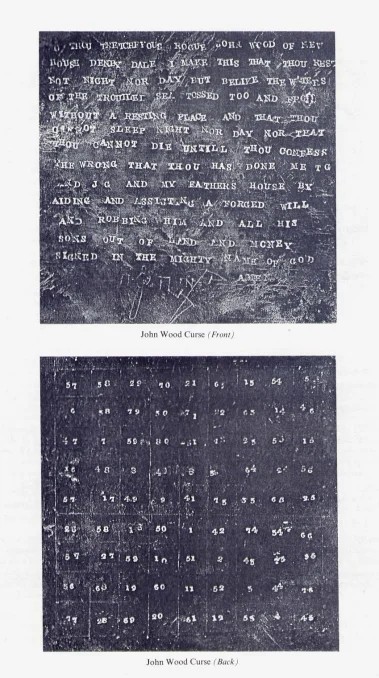 O THOU TRETCHEYOUS ROGUE JOHN WOOD OF NEW
HOUSE DENBY DALE I MAKE THIS THAT THOU REST
NOT NIGHT NOR DAY BUT BELIKE THE WATERS
OF THE TROUBLET SEA TOSSED TOO AND FRO
WITHOUT A RESTING PLACE AND THAT THOU
CANNOT SLEEP NIGHT NOR DAY NOR THAT
THOU CANNOT DIE UNTILL THOU CONFESS
THE WRONG THAT THOU HAS DONE ME TG
AND JG AND MY FATHERS HOUSE BY
AIDING AND ASSISTING A FORGED WILL
AND ROBBING HIM AND ALL HIS
SONS OUT OF LAND AND MONEY
SIGNED IN THE MIGHTY NAME OF GOD
AMEN
John Wood Curse (Front)
57 58 29 70 21 62 15 54 5
6 58 79 50 71 22 63 14 46
47 7 59 80 31 25 55 15
16 48 8 41 64 56
57 17 49 9 41 75 35 66 25
26 58 18 50 1 42 74 34 66
67 27 59 10 51 2 45 75 36
36 68 19 60 11 52 5 44 76
77 28 69 20 61 12 55 4 45
John Wood Curse (Back)